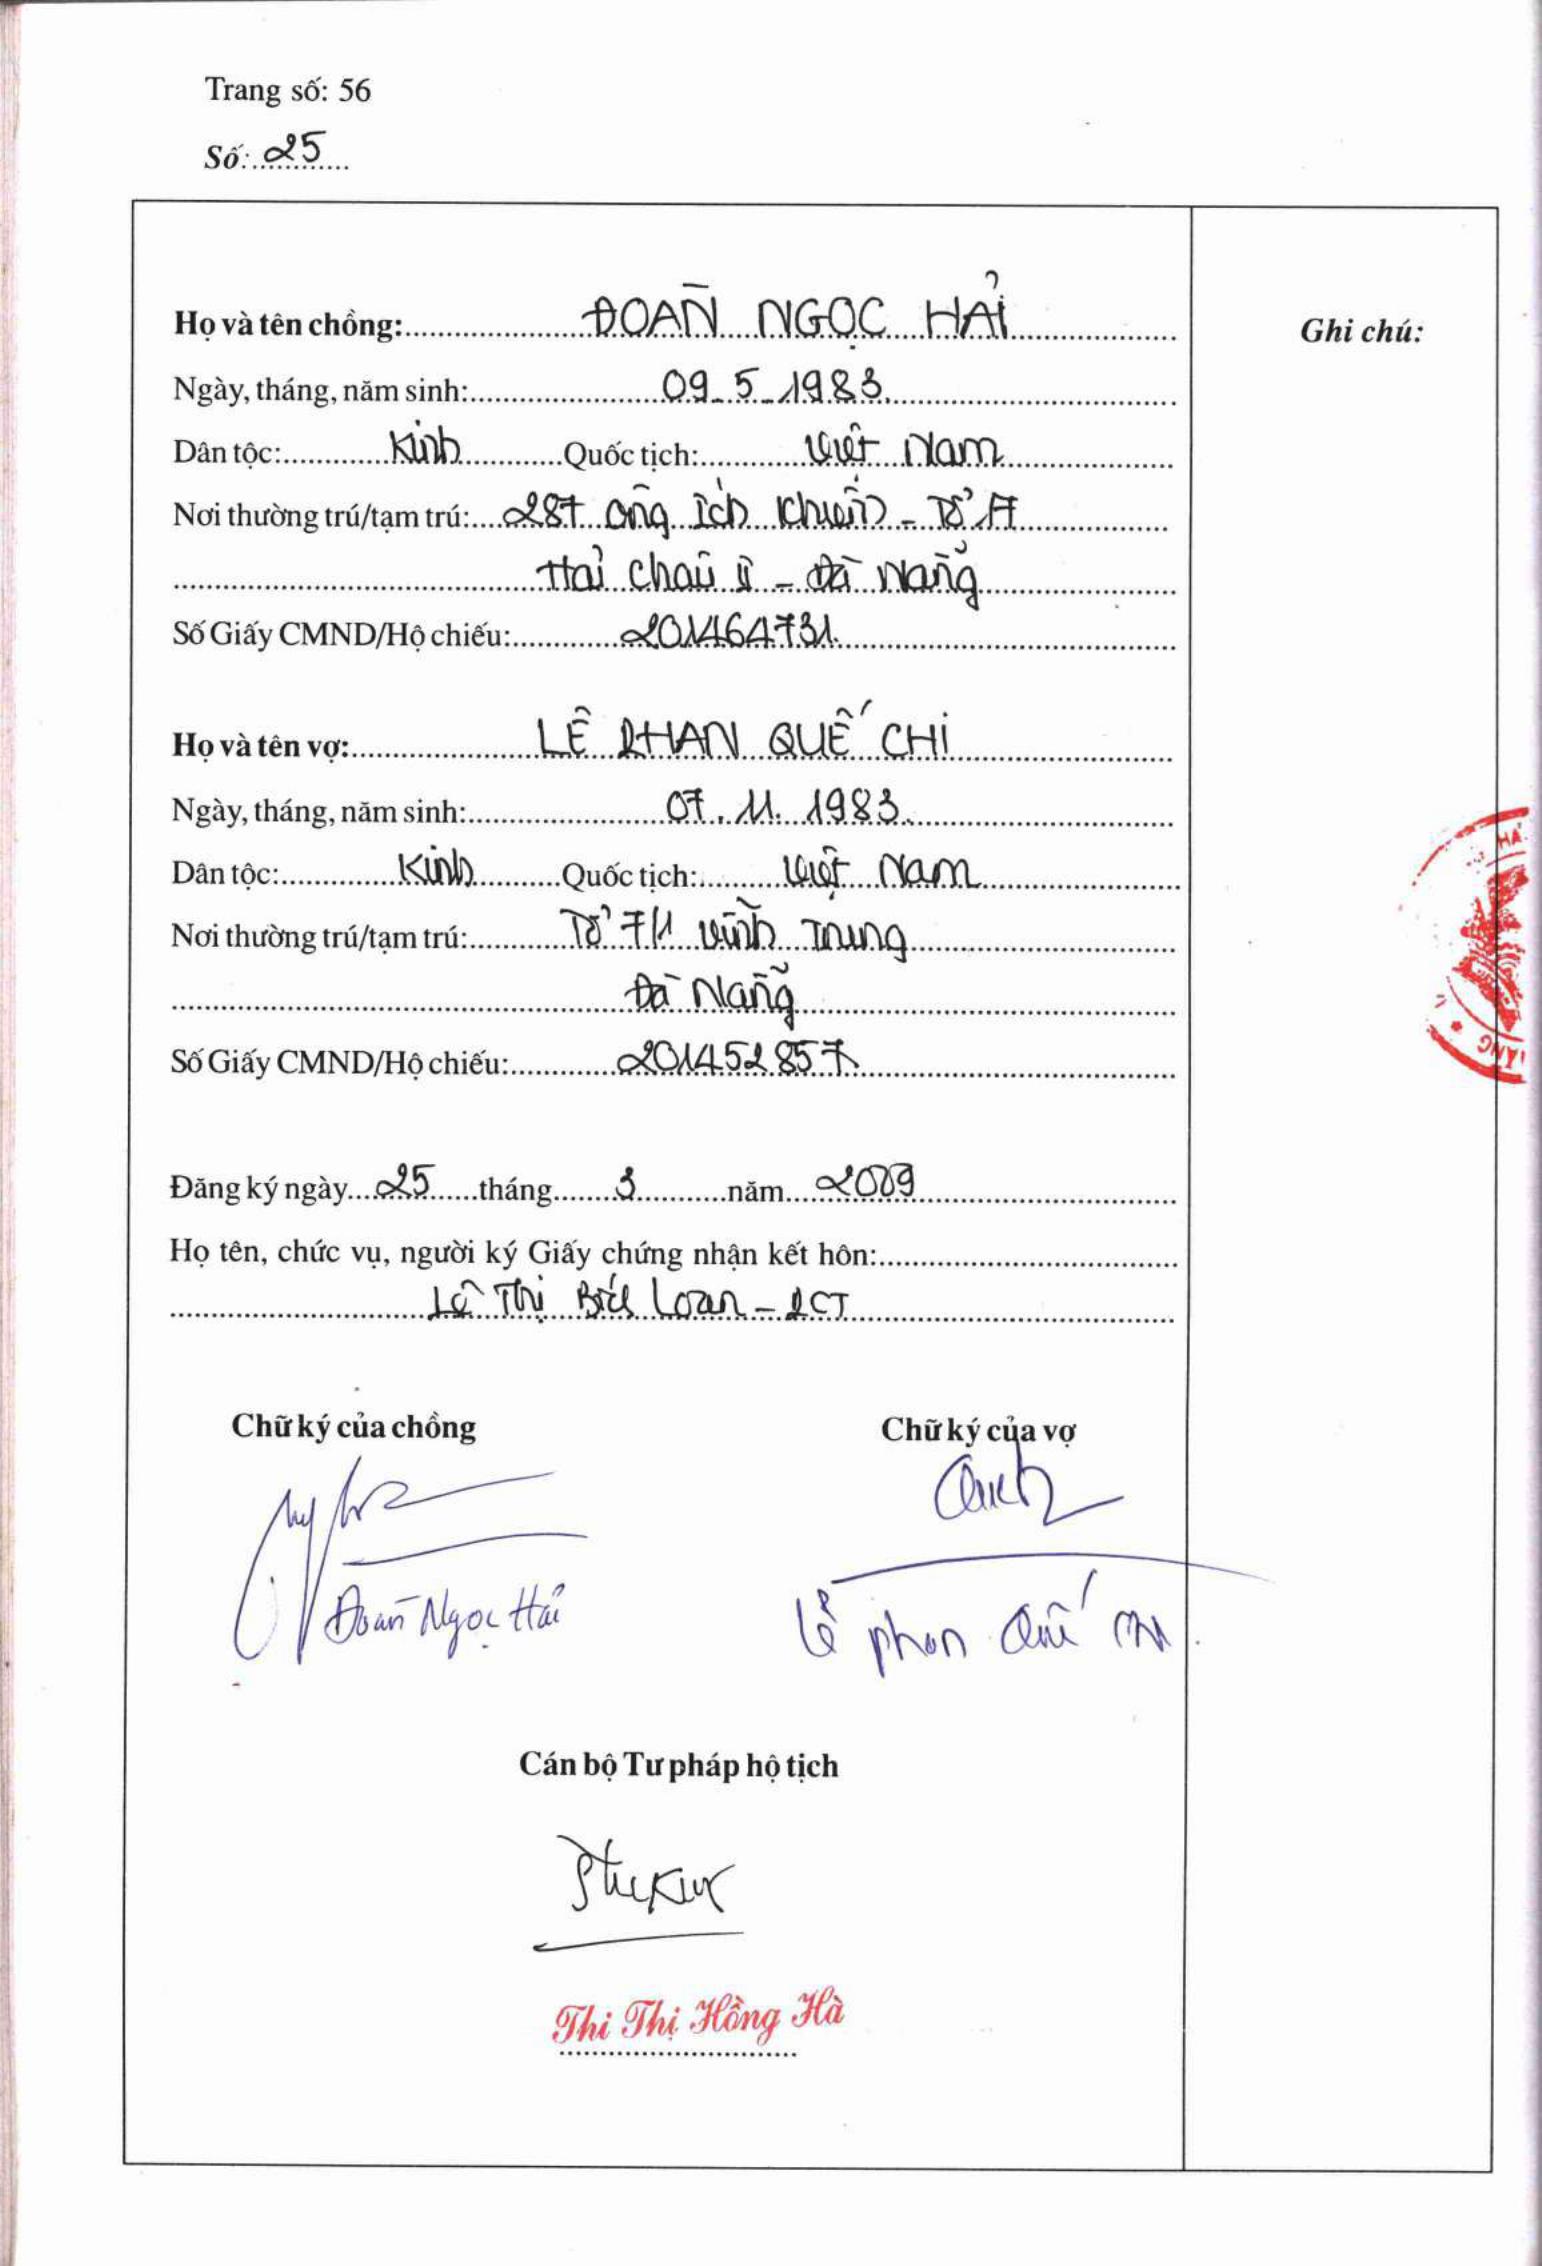 Trang số: 56
Số: 25
Họ và tên chồng: ĐOÀN NGỌC HẢI
Ghi chú:
Ngày, tháng, năm sinh: 09-5-1983
Dân tộc: Kinh Quốc tịch: Việt Nam
Nơi thường trú/tạm trú: 287 Ông Ích Khiêm - Tổ 17
Hải Châu II - Đà Nẵng
Số Giấy CMND/Hộ chiếu: 201464731
Họ và tên vợ: LÊ PHAN QUẾ CHI
Ngày, tháng, năm sinh: 07.11.1983
Dân tộc: Kinh Quốc tịch: Việt Nam
Nơi thường trú/tạm trú: Tổ 71 Vĩnh Trung
Đà Nẵng
Số Giấy CMND/Hộ chiếu: 201452857
Đăng ký ngày 25 tháng 3 năm 2009
Họ tên, chức vụ, người ký Giấy chứng nhận kết hôn:
Lê Thị Bích Loan - PCT
Chữ ký của chồng Chữ ký của vợ
Đoàn Ngọc Hải Lê Phan Quế Chi
Cán bộ Tư pháp hộ tịch
Thi Thị Hồng Hà